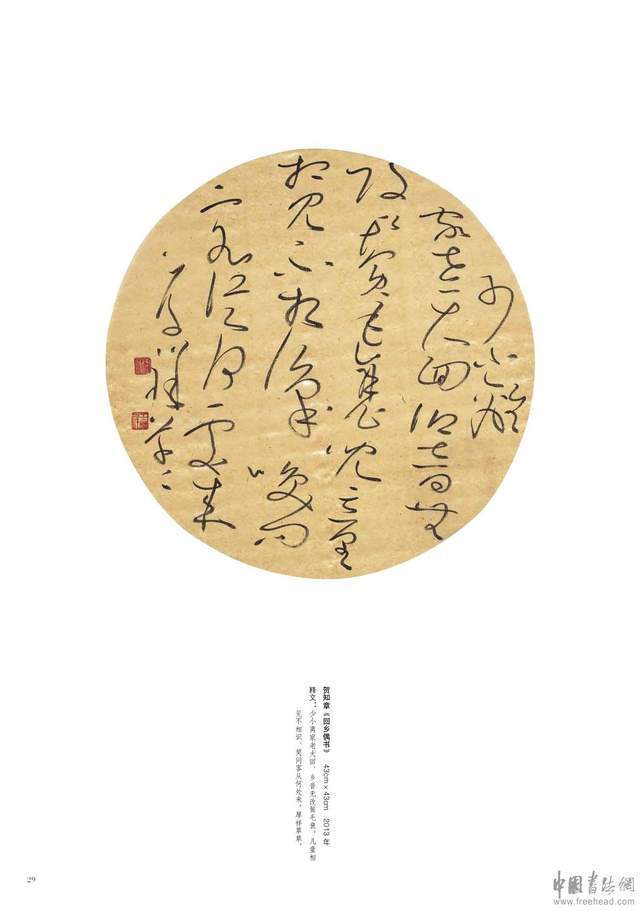 少小離
家老大回鄉音無
改鬢毛衰兒童
相見不相識笑問
客從何處來
厚祥草草
贺知章《回乡偶书》 43cm×43cm 2013年
释文：少小离家老大回，乡音无改鬓毛衰。儿童相
见不相识，笑问客从何处来。厚祥草草。
29
中國書法網
www.freehead.com